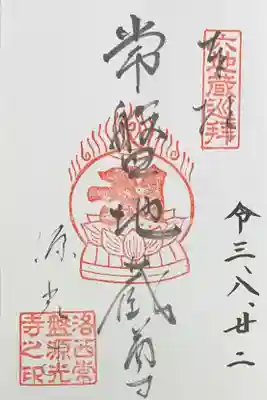 六地蔵巡拝
奉拝
令三、八、廿二
常盤地蔵尊
源光
洛西常
盤源光
寺之印